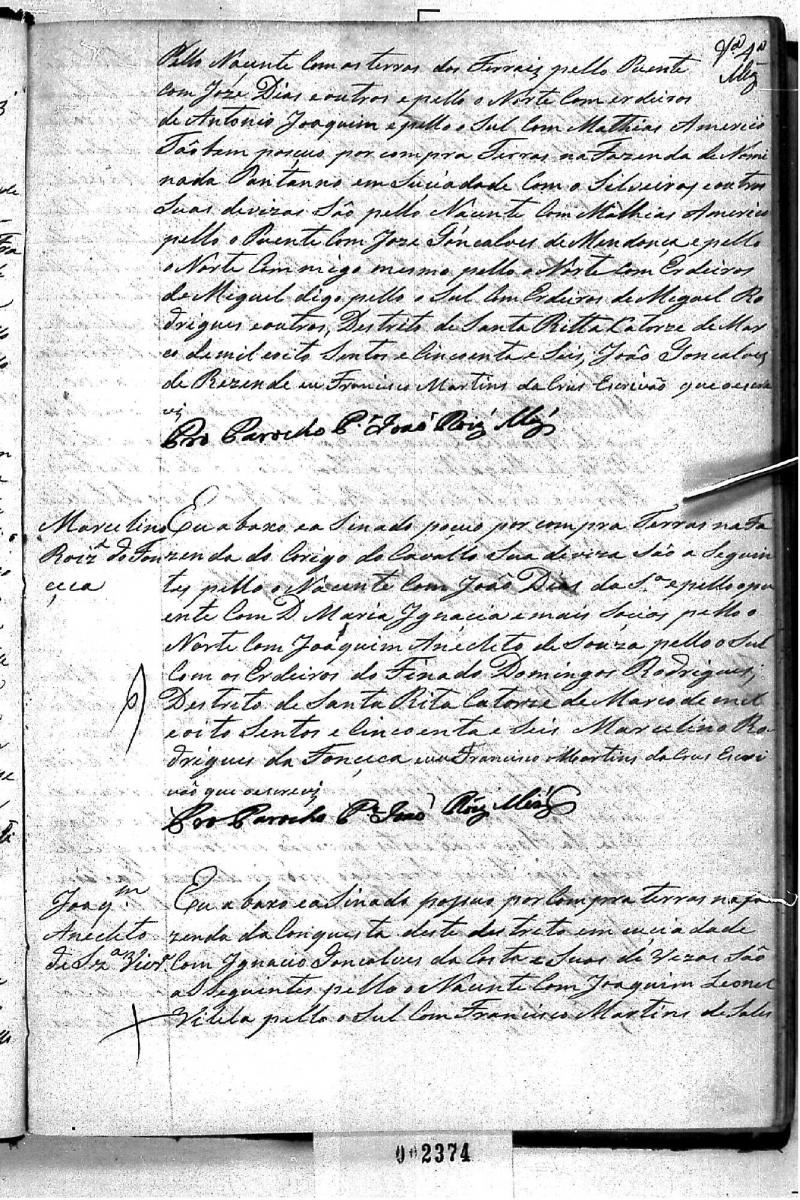 Pello Nacente Com as terras dos Ferraiz pello Puente
com Joze Dias e outros e pello o Norte Com erdeiros
de Antonio Joaquim e pello o Sul Com Mathias Americo
Tãobem posuo por compra Terras na Fazenda de Nomi
nada Pantanno em Suciadade Com o Silveiras e outros
Suas devizas São pello Nacente Com Mathias Americo
pello o Puente Com Joze Gonçalves de Mendonça e pello
o Norte Com migo mesmo, pello o Norte Com Erdeiros
de Miguel digo pello o Sul Com Erdeiros de Miguel Ro
drigues e outros, Destrito de Santa Ritta Catorze de Mar
ço de mil e oito Sentos e Cincoenta e Seis, João Goncalves
de Rezende eu Francisco Martins da Crus Escrivão que o escre
vi
Pro Parocho Pe. João Roiz Miz
Marcelino
Roiz. da Fon
ceca
Eu a baxo e a Sinado poçuo por compra Terras na Fa
zenda do Corigo do Cavallo Sua deviza São a Seguin
tes pello o Nacente Com João Dias da Sa. e pello o pu
ente Com D. Maria Ignacia e mais Socios pello o
Norte Com Joaquim Anécleto de Souza pello o Sul
Com os Erdeiros do Finado Domingos Rodrigues,
Destreto de Santa Rita Catorze de Marco de mil
e oito Sentos e Cincoenta e Seis Marcelino Ro
drigues da Fonceca eu Francisco Martins da Crus Escri
vão que o escrevi
Pro Parocho Pe. João Roiz Miz
Joaqm.
Anecleto
de Sza.
Eu a baxo e a Sinado posuo por Compra terras na fa
zenda da Conquesta deste destreto em suciadade
Com Ignacio Goncalves da Costa e Suas de Vezas São
as Seguintes pello o Nacente Com Joaquim Leonel
Vilela pello o Sul Com Francisco Martins de Sales
002374